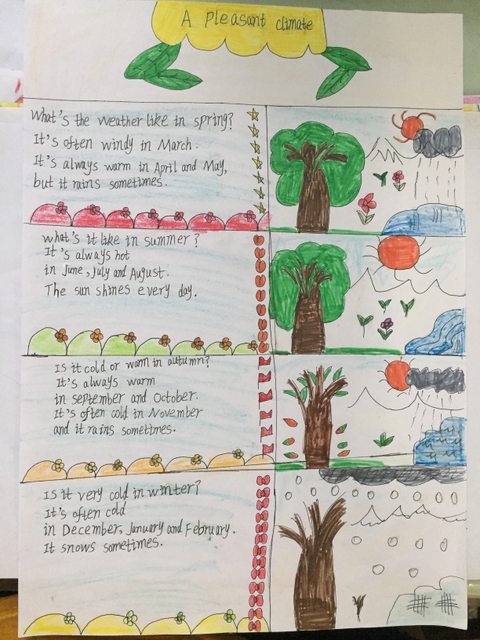 A pleasant climate
What's the weather like in spring?
It's often windy in March.
It's always warm in April and May,
but it rains sometimes.
what's it like in summer?
It's always hot
in June, July and August.
The sun shines every day.
Is it cold or warm in autumn?
It's always warm
in september and October.
It's often cold in November
and it rains sometimes.
Is it very cold in winter?
It's often cold
in December, January and February.
It snows sometimes.